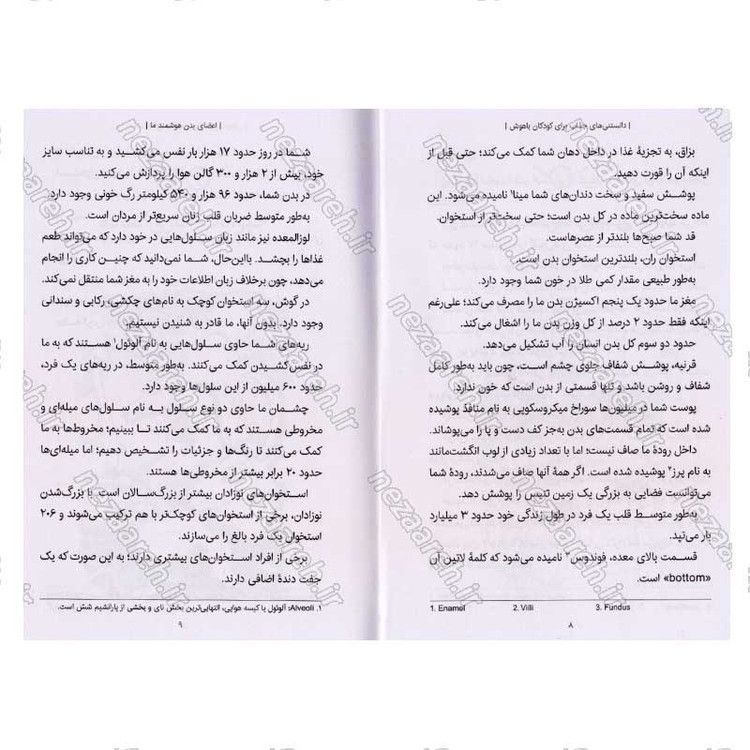 | دانستنی‌های جذاب برای کودکان باهوش |
بزاق، به تجزیهٔ غذا در داخل دهان شما کمک می‌کند؛ حتی قبل از
اینکه آن را قورت دهید.
پوشش سفید و سخت دندان‌های شما مینا۱ نامیده می‌شود. این
ماده سخت‌ترین ماده در کل بدن است؛ حتی سخت‌تر از استخوان.
قد شما صبح‌ها بلندتر از عصرهاست.
استخوان ران، بلندترین استخوان بدن است.
به‌طور طبیعی مقدار کمی طلا در خون شما وجود دارد.
مغز ما حدود یک پنجم اکسیژن بدن ما را مصرف می‌کند؛ علی‌رغم
اینکه فقط حدود ۲ درصد از کل وزن بدن ما را اشغال می‌کند.
حدود دو سوم کل بدن انسان را آب تشکیل می‌دهد.
قرنیه، پوشش شفاف جلوی چشم است، چون باید به‌طور کامل
شفاف و روشن باشد و تنها قسمتی از بدن است که خون ندارد.
پوست شما در میلیون‌ها سوراخ میکروسکوپی به نام منافذ پوشیده
شده است که تمام قسمت‌های بدن به‌جز کف دست و پا را می‌پوشاند.
داخل رودهٔ ما صاف نیست؛ اما با تعداد زیادی از لوب انگشت‌مانند
به نام پرز۲ پوشیده شده است. اگر همهٔ آنها صاف می‌شدند، رودهٔ شما
می‌توانست فضایی به بزرگی یک زمین تنیس را پوشش دهد.
به‌طور متوسط قلب یک فرد در طول زندگی خود حدود ۳ میلیارد
بار می‌تپد.
قسمت بالای معده، فوندوس۳ نامیده می‌شود که کلمهٔ لاتین آن
«bottom» است.
1. Enamel 2. Villi 3. Fundus
۸
| اعضای بدن هوشمند ما |
شما در روز حدود ۱۷ هزار بار نفس می‌کشید و به تناسب سایز
خود، بیش از ۲ هزار و ۳۰۰ گالن هوا را پردازش می‌کنید.
در بدن شما، حدود ۹۶ هزار و ۵۴۰ کیلومتر رگ خونی وجود دارد.
به‌طور متوسط ضربان قلب زنان سریع‌تر از مردان است.
لوزالمعده نیز مانند زبان سلول‌هایی در خود دارد که می‌تواند طعم
غذاها را بچشد. بااین‌حال، شما نمی‌دانید که چنین کاری را انجام
می‌دهد، چون برخلاف زبان اطلاعات خود را به مغز شما منتقل نمی‌کند.
در گوش، سه استخوان کوچک به نام‌های چکشی، رکابی و سندانی
وجود دارد. بدون آنها، ما قادر به شنیدن نیستیم.
ریه‌های شما حاوی سلول‌هایی به نام آلوئول۱ هستند که به ما
در نفس‌کشیدن کمک می‌کنند. به‌طور متوسط، در ریه‌های یک فرد،
حدود ۶۰۰ میلیون از این سلول‌ها وجود دارد.
چشمان ما حاوی دو نوع سلول به نام سلول‌های میله‌ای و
مخروطی هستند که به ما کمک می‌کنند تا ببینیم؛ مخروط‌ها به ما
کمک می‌کنند تا رنگ‌ها و جزئیات را تشخیص دهیم؛ اما میله‌ای‌ها
حدود ۲۰ برابر بیشتر از مخروطی‌ها هستند.
استخوان‌های نوزادان بیشتر از بزرگ‌سالان است. با بزرگ‌شدن
نوزادان، برخی از استخوان‌های کوچک‌تر با هم ترکیب می‌شوند و ۲۰۶
استخوان یک فرد بالغ را می‌سازند.
برخی از افراد استخوان‌های بیشتری دارند؛ به این صورت که یک
جفت دندهٔ اضافی دارند.
۱. Alveoli: آلوئول یا کیسه هوایی، انتهایی‌ترین بخش نای و بخشی از پارانشیم شش است.
۹
nezaareh.ir